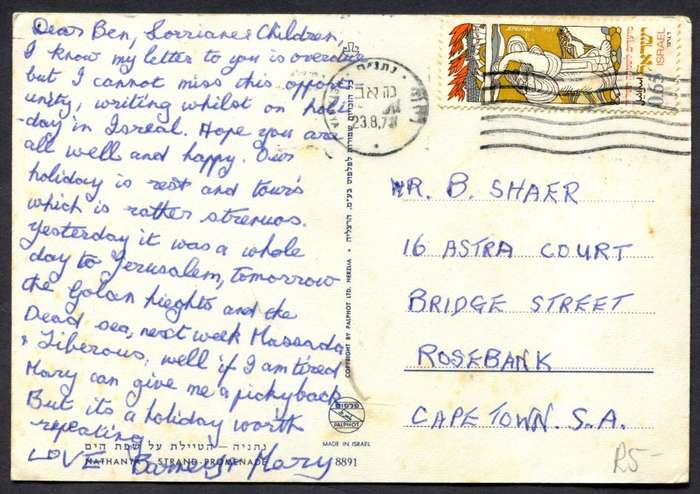 Dear Ben, Lorriane & Children,
I know my letter to you is overdue
but I cannot miss this opport-
unity, writing whilst on holi-
-day in Isreal. Hope you are
all well and happy. Our
holiday is rest and tours
which is rather strenuos.
Yesterday it was a whole
day to Jerusalem, tomorrow
the Golan hieghts and the
Dead sea, next week Massada
& Tiberous, well if I am tired
Mary can give me a pickyback
But its a holiday worth
repeating
LOVE & Mary
נתניה - הטיילת על שפת הים
NATHANYA - STRAND-PROMENADE
8891
COPYRIGHT BY PALPHOT LTD. HERZLIA
כל הזכויות שמורות לפלפוט בע"מ. הרצליה
פלפוט
PALPHOT
MADE IN ISRAEL
נתניה
23.8.7
JEREMIAH
ISRAEL
ישראל
0.65
MR. B. SHAER
16 ASTRA COURT
BRIDGE STREET
ROSEBANK
CAPE TOWN. S.A.
R5-